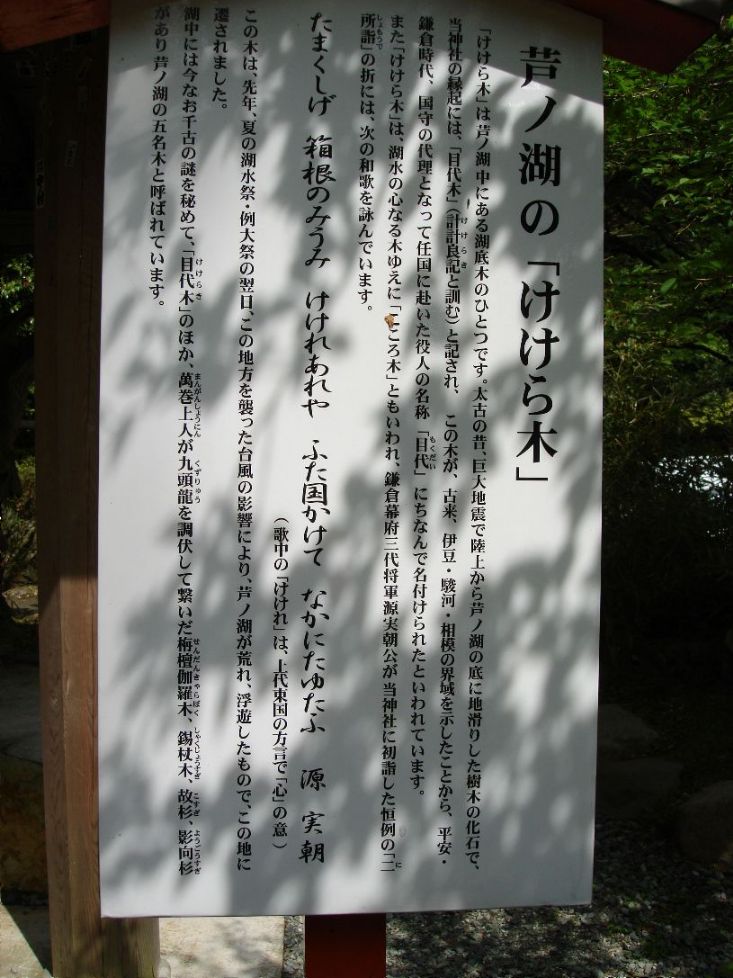 芦ノ湖の「けけら木」
「けけら木」は芦ノ湖中にある湖底木のひとつです。太古の昔、巨大地震で陸上から芦ノ湖の底に地滑りした樹木の化石で、
当神社の縁起には、「目代木」（計計良記と訓む）と記され、この木が、古来、伊豆・駿河・相模の界域を示したことから、平安・
鎌倉時代、国守の代理となって任国に赴いた役人の名称「目代」にちなんで名付けられたといわれています。
また「けけら木」は、湖水の心なる木ゆえに「こころ木」ともいわれ、鎌倉幕府三代将軍源実朝公が当神社に初詣した恒例の「二
所詣」の折には、次の和歌を詠んでいます。
たまくしげ 箱根のみうみ けけれあれや ふた国かけて なかにたゆたふ 源 実朝
（歌中の「けけれ」は、上代東国の方言で「心」の意）
この木は、先年、夏の湖水祭・例大祭の翌日、この地方を襲った台風の影響により、芦ノ湖が荒れ、浮遊したもので、この地に
遷されました。
湖中には今なお千古の謎を秘めて、「目代木」のほか、萬巻上人が九頭龍を調伏して繋いだ栴檀伽羅木、錫杖木、故杉、影向杉
があり芦ノ湖の五名木と呼ばれています。